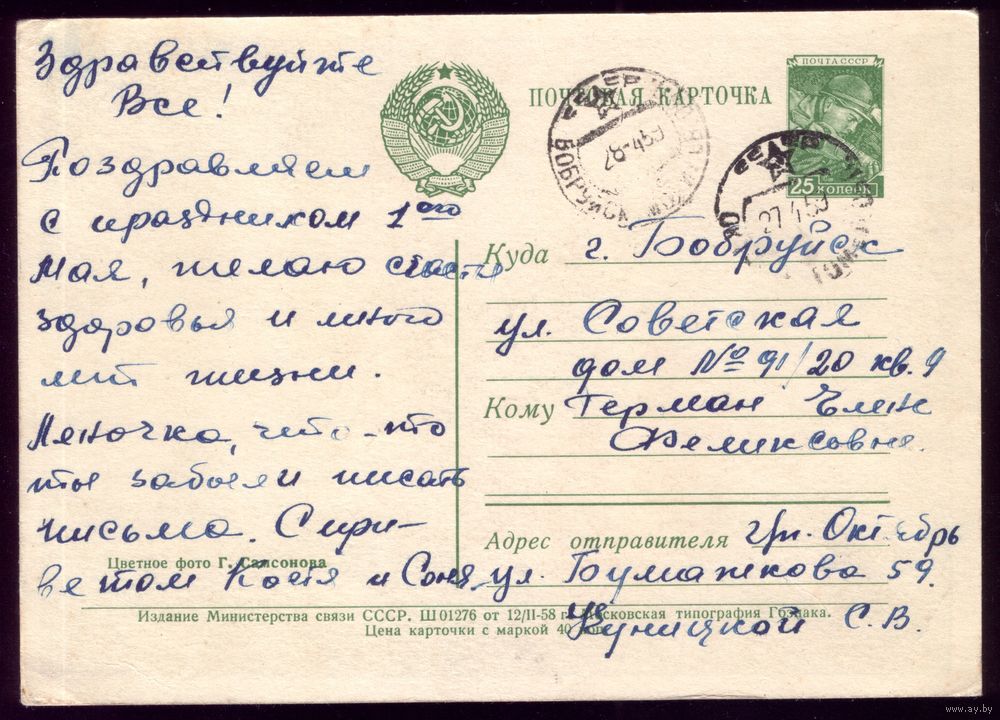 Здравствуйте
Все!
Поздравляем
с праздником 1ого
Мая, желаю счастя
здоровья и много
лет жизни.
Леночка, что-то
ты забыли писать
письма. С при-
ветом Костя и Соня
ПОЧТОВАЯ КАРТОЧКА
ПОЧТА СССР
25 КОПЕЕК
БОБРУЙСК
28-4 59
27 4 59
Куда г. Бобруйск
ул. Советская
дом № 91/20 кв. 9
Кому Герман Елик
Феликсовне.
Адрес отправителя г/п. Октябрь
ул. Бумажкова 59.
Куницкой С. В.
Цветное фото Г. Самсонова
Издание Министерства связи СССР. Ш 01276 от 12/II-58 г. Московская типография Гознака.
Цена карточки с маркой 40 коп.
www.ay.by